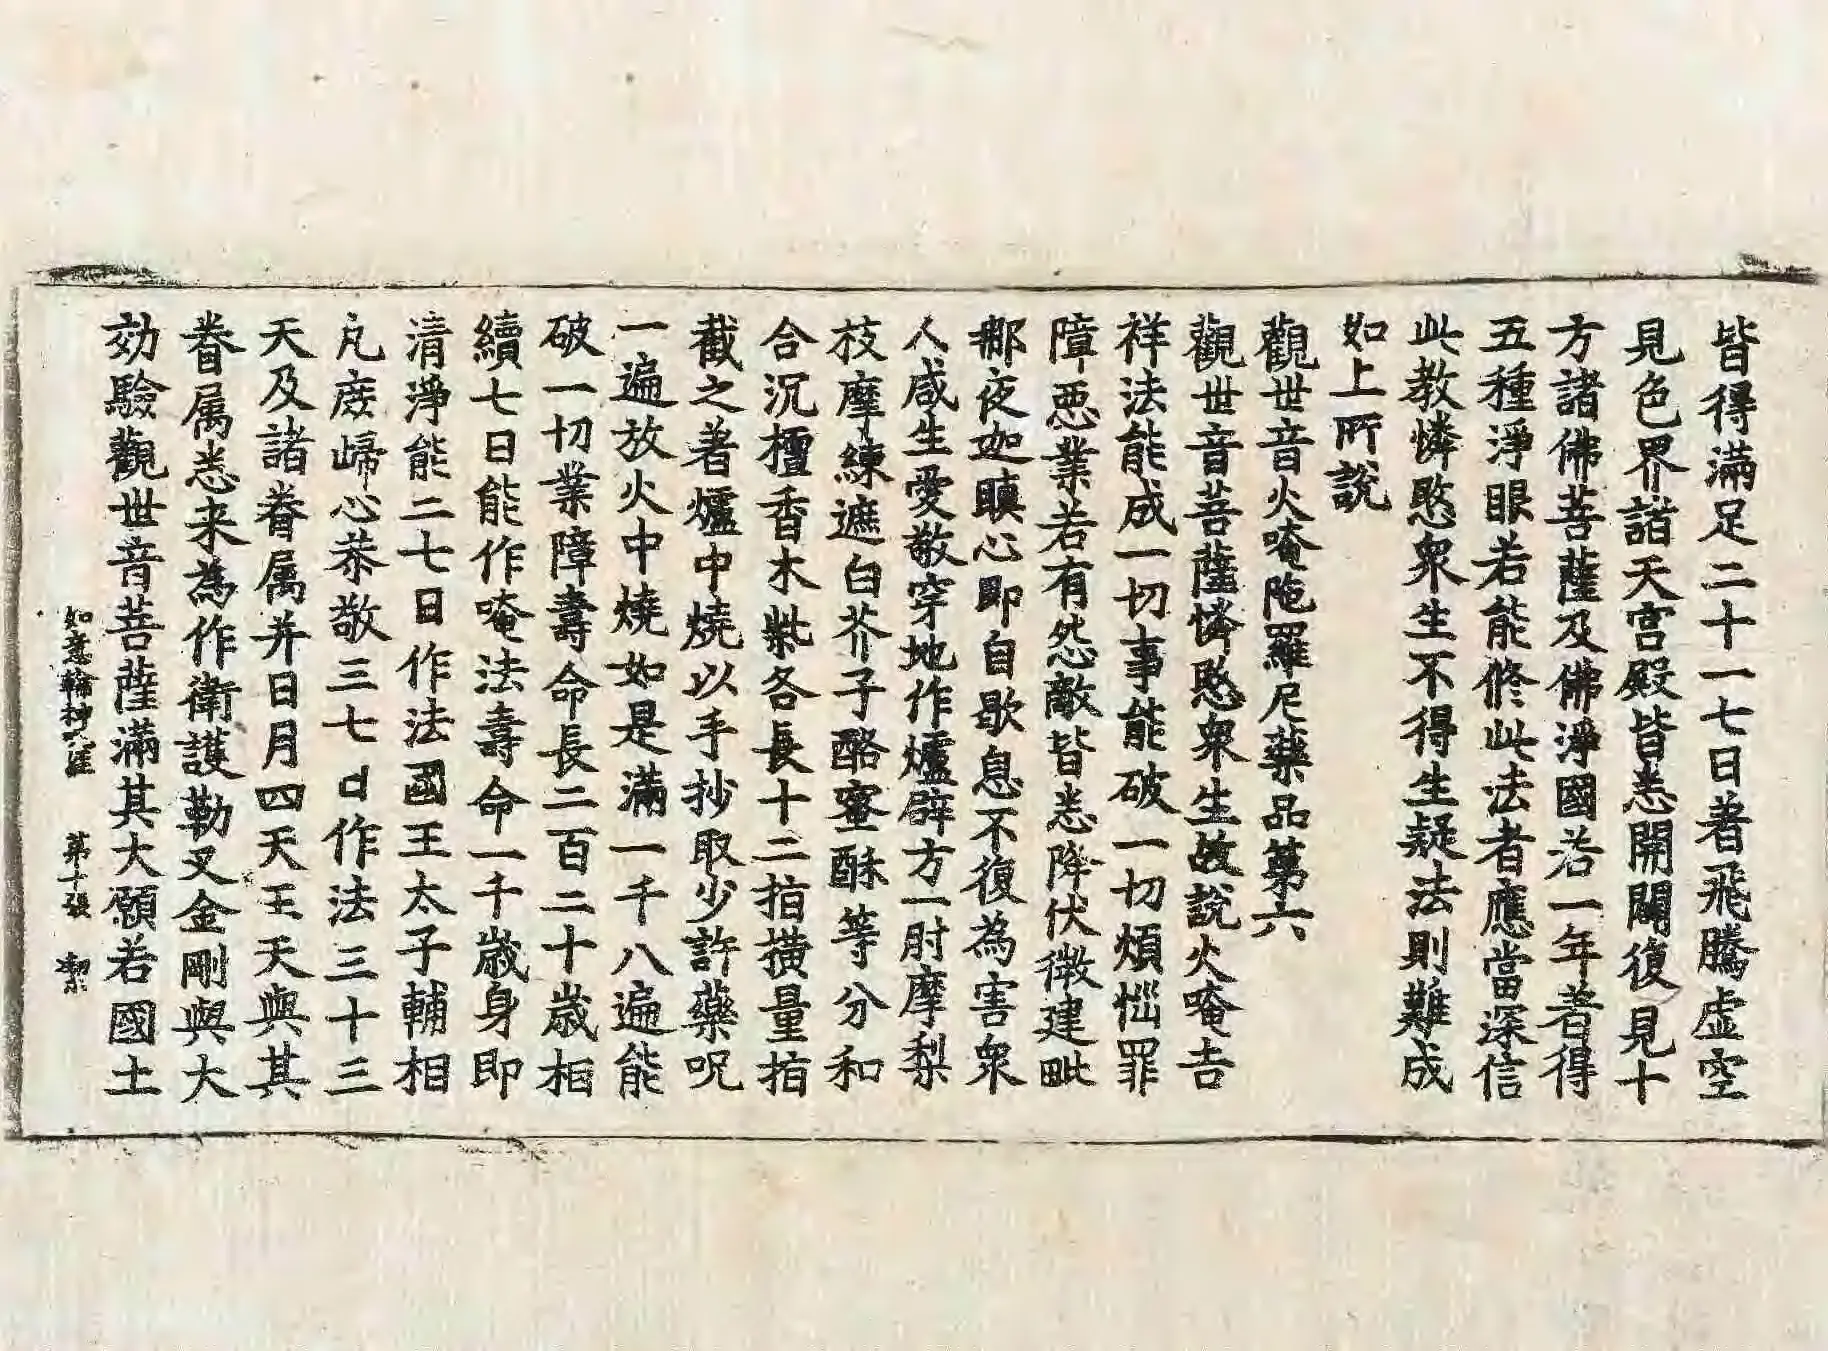 皆得滿足二十一七日著飛騰虛空
見色界諸天宮殿皆悉開闢復見十
方諸佛菩薩及佛淨國若一年著得
五種淨眼若能修此法者應當深信
此教憐愍衆生不得生疑法則難成
如上所說
觀世音火唵陁羅尼藥品第六
觀世音菩薩憐愍衆生故說火唵吉
祥法能成一切事能破一切煩惱罪
障惡業若有怨敵皆悉降伏微建毗
那夜迦瞋心即自歇息不復為害衆
人咸生愛敬穿地作爐辟方一肘摩梨
枝摩練遮白芥子酪蜜酥等分和
合沉檀香木柴各長十二拍撗量拍
截之著爐中燒以手抄取少許藥呪
一遍放火中燒如是滿一千八遍能
破一切業障壽命長二百二十歲相
續七日能作唵法壽命一千歲身即
清淨能二七日作法國王太子輔相
凡庶歸心恭敬三七日作法三十三
天及諸眷属并日月四天王天與其
眷属悉来為作衛護勒叉金剛與大
効驗觀世音菩薩滿其大願若國土
如意輪神呪經 第十張